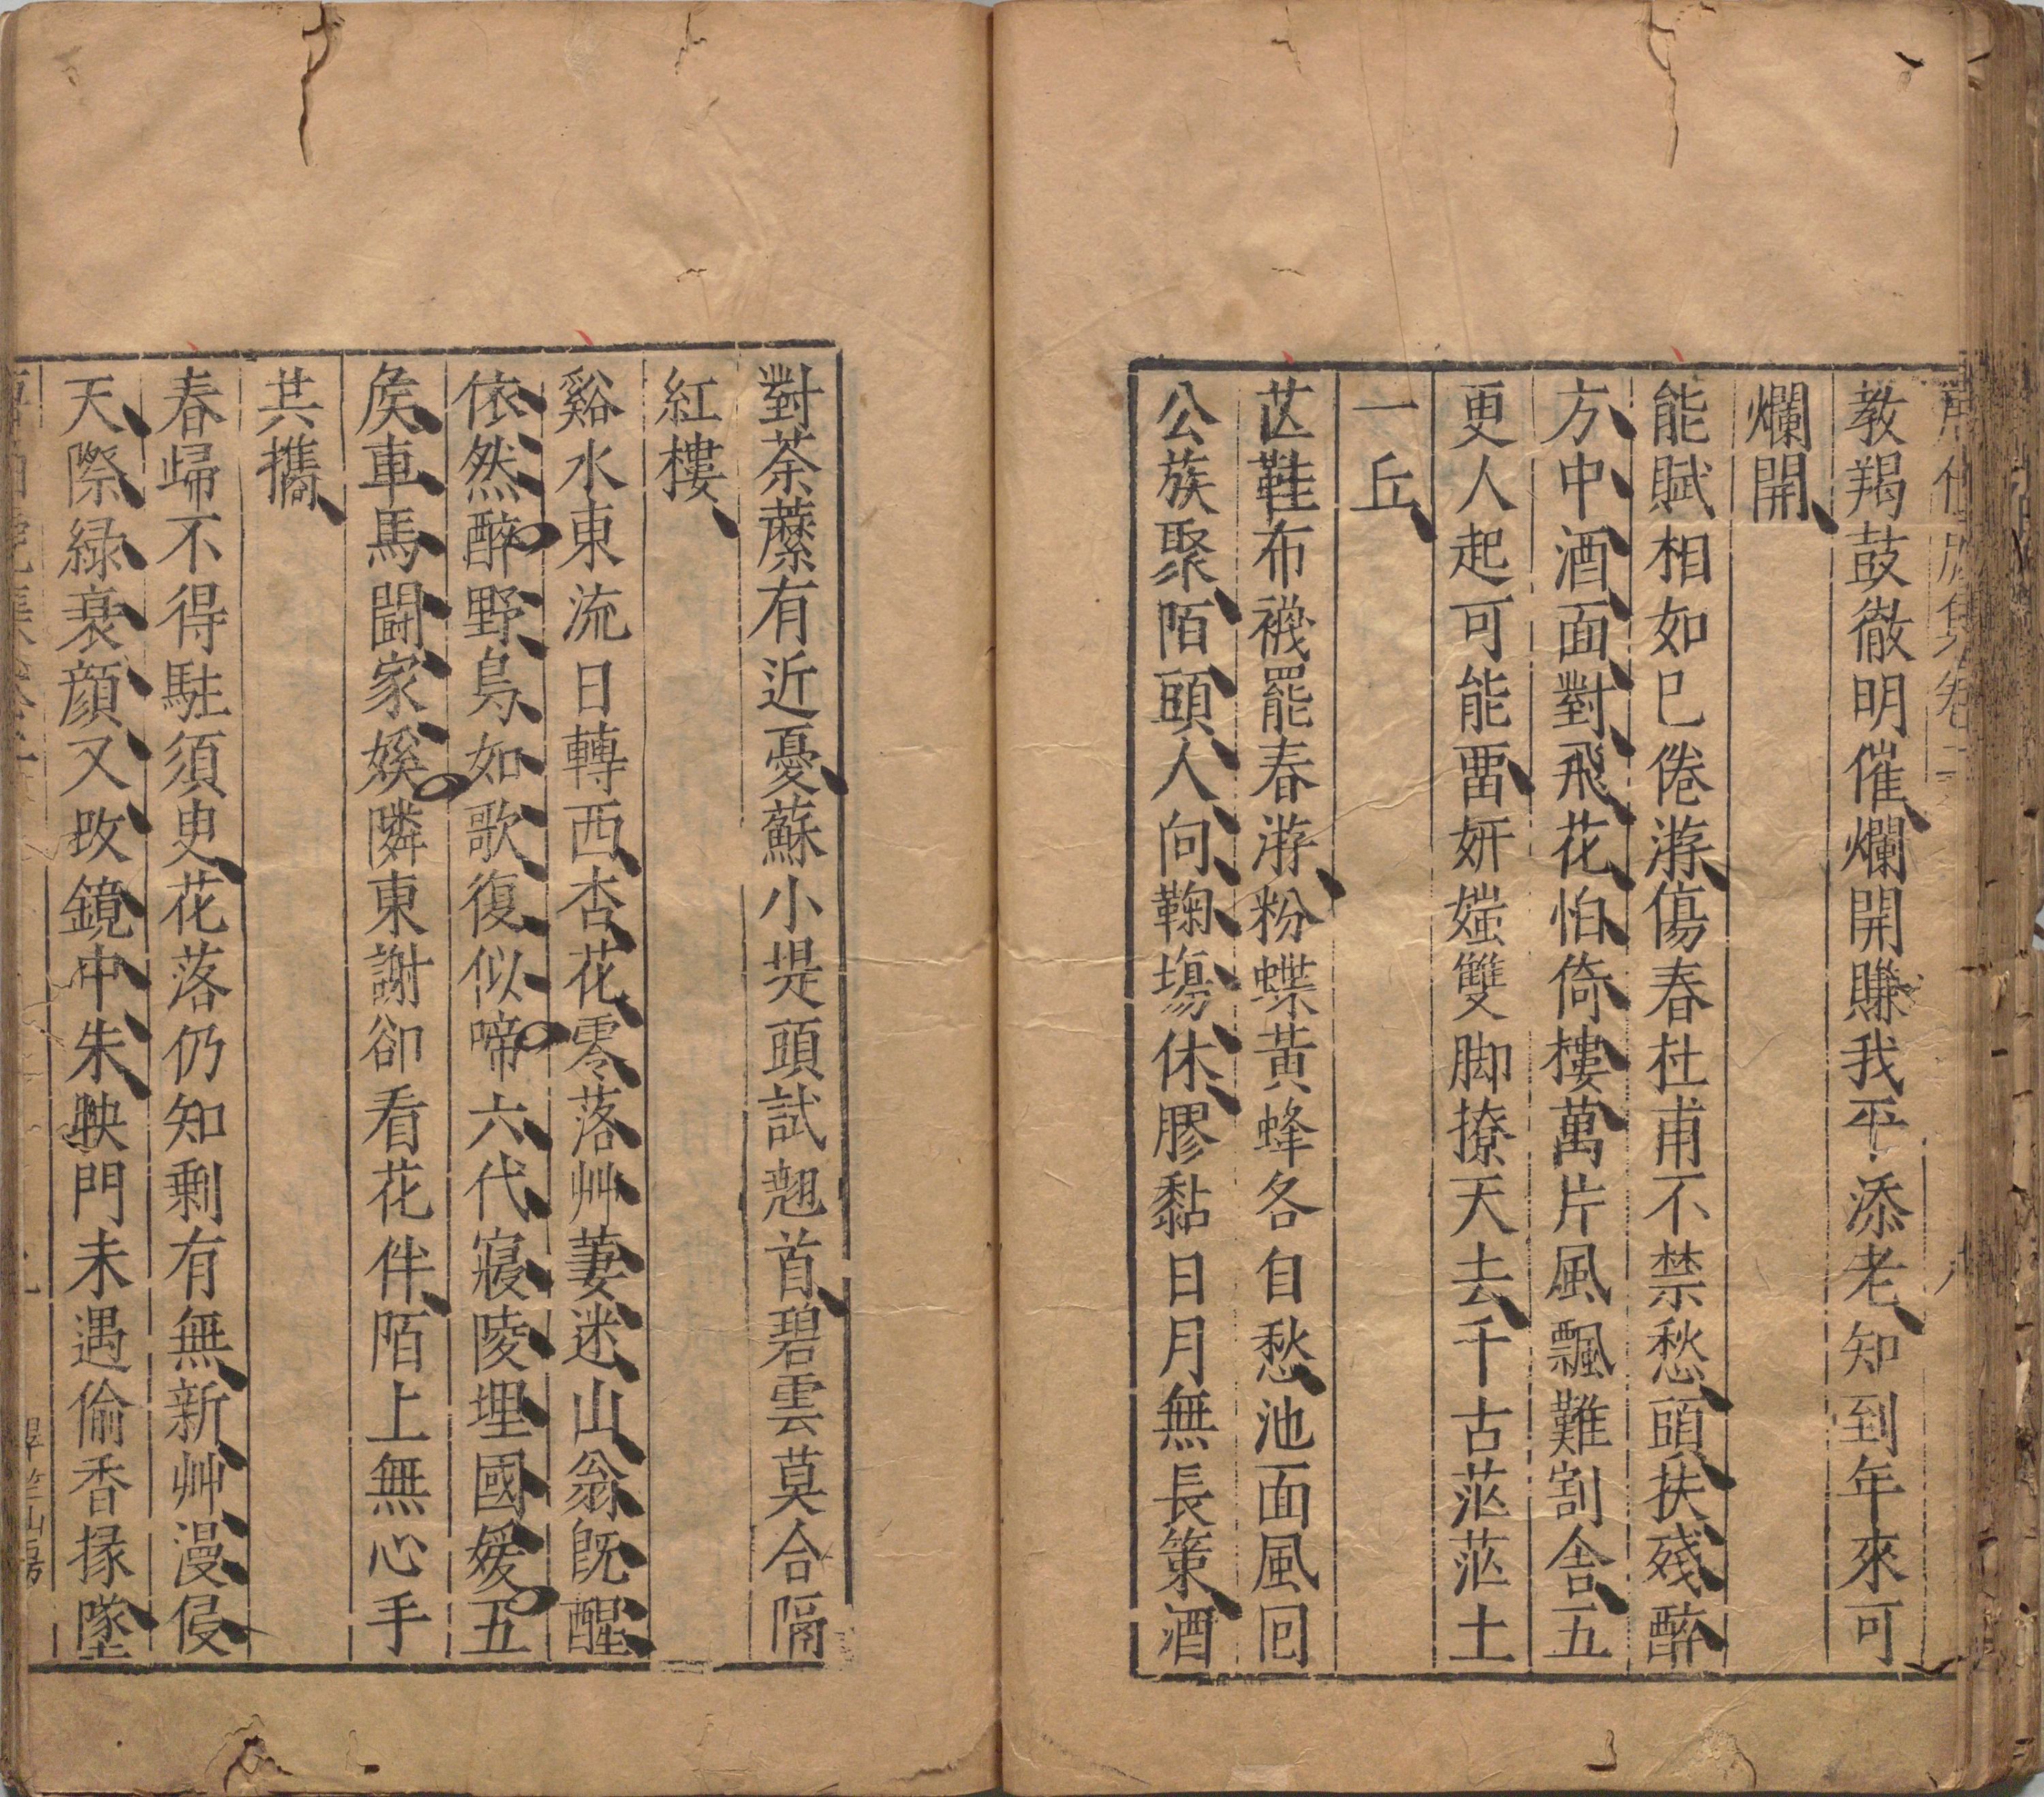 教羯鼓徹明催爛開賺我平添老知到年來可
爛開
能賦相如已倦游傷春杜甫不禁愁頭扶殘醉
方中酒面對飛花怕倚樓萬片風飄難割舍五
更人起可能畱妍媸雙脚撩天去千古茫茫土
一丘
芒鞋布襪罷春游粉蝶黃蜂各自愁池面風回
公族聚陌頭人向鞠塲休膠黏日月無長策酒
對荼蘼有近憂蘇小堤頭試翹首碧雲莫合隔
紅樓
谿水東流日轉西杏花零落艸萋迷山翁旣醒
依然醉野鳥如歌復似啼六代寢陵埋國媛五
矦車馬鬬家媐隣東謝卻看花伴陌上無心手
共攜
春歸不得駐須臾花落仍知剩有無新艸漫侵
天際緑衰顔又改鏡中朱映門未遇偷香掾墜